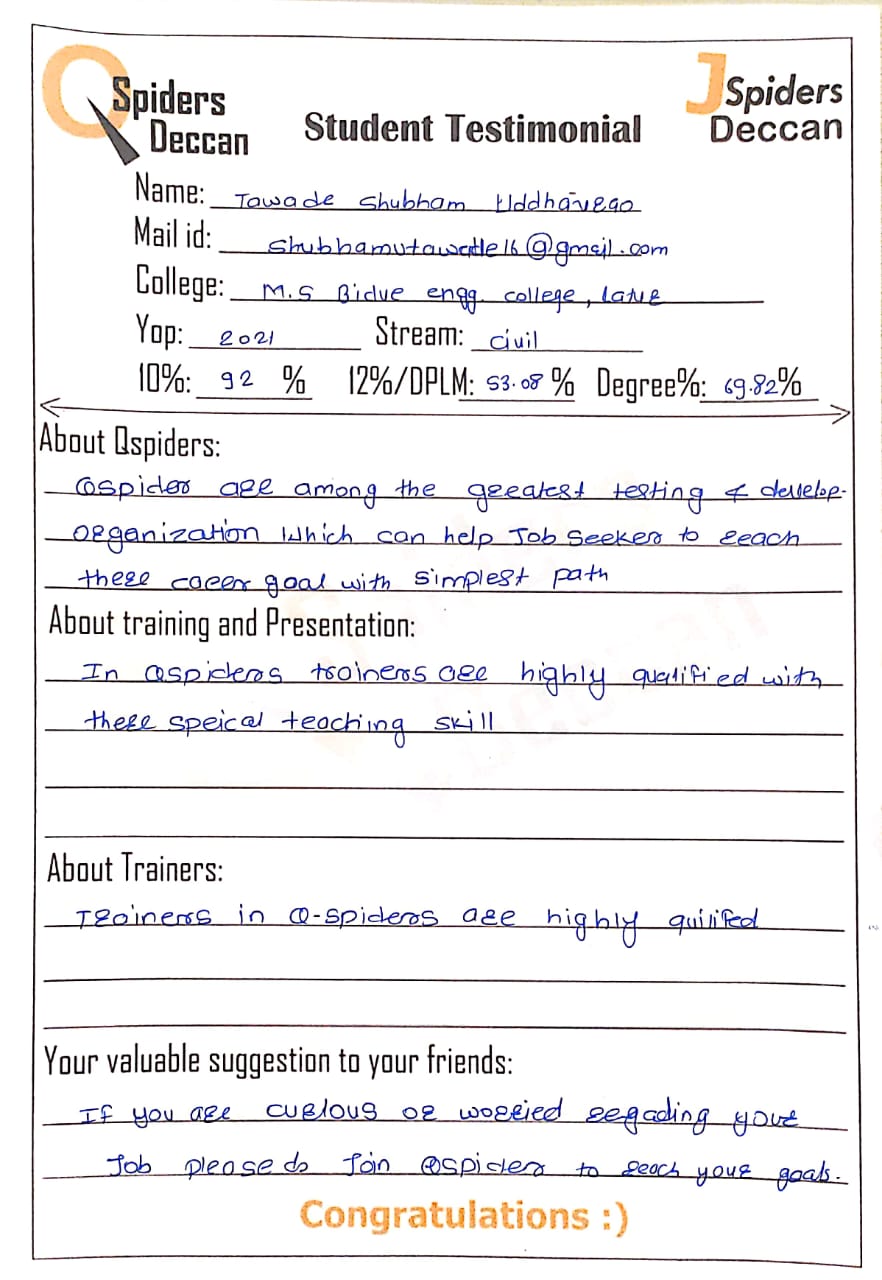 QSpiders
Deccan
JSpiders
Deccan
Student Testimonial
Name: Tawade Shubham Uddhavrao
Mail id: shubhamutawade16@gmail.com
College: M.S Bidve engg. college, latur
Yop: 2021 Stream: civil
10%: 92 % 12%/DPLM: 53.08 % Degree%: 69.82%
About Qspiders:
Qspider are among the greatest testing & develop-
organization which can help Job seeker to reach
there caeer goal with simplest path
About training and Presentation:
In Qspiders trainers are highly qualified with
there speical teaching skill
About Trainers:
Trainers in Q-spiders are highly quilifed
Your valuable suggestion to your friends:
If you are curious or worried regading your
Job please do Join Qspider to reach your goals.
Congratulations :)